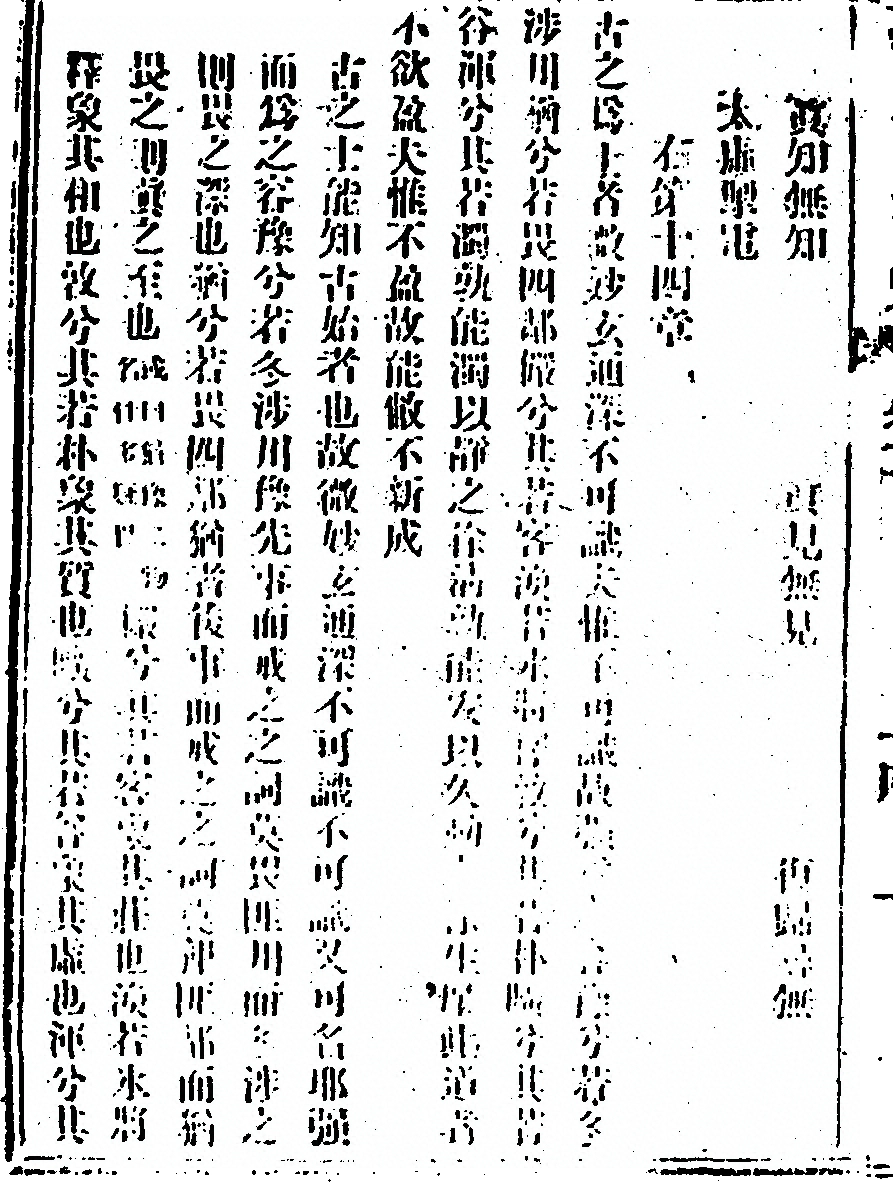 眞知無知 眞見無見 復歸於無
太虛聖電
右第十四章
古之爲士者微妙玄通深不可識夫惟不可識故強 容豫兮若冬
涉川猶兮若畏四鄰儼兮其若客渙若冰將釋敦兮其若朴曠兮其若
谷渾兮其若濁孰能濁以靜之徐清孰能安以久動 生保此道者
不欲盈夫惟不盈故能敝不新成
古之士能知古始者也故微妙玄通深不可識不可識又可名耶強
而爲之容豫兮若冬涉川豫先事而戒之之詞莫畏匪川而冬涉之
則畏之深也猶兮若畏四鄰猶者後事而戒之之詞 鄰匪鄰而猶
畏之則眞之至也 儼兮其若客象其莊也渙若冰將
釋象其和也敦兮其若朴象其質也曠兮其若谷象其虛也渾兮其